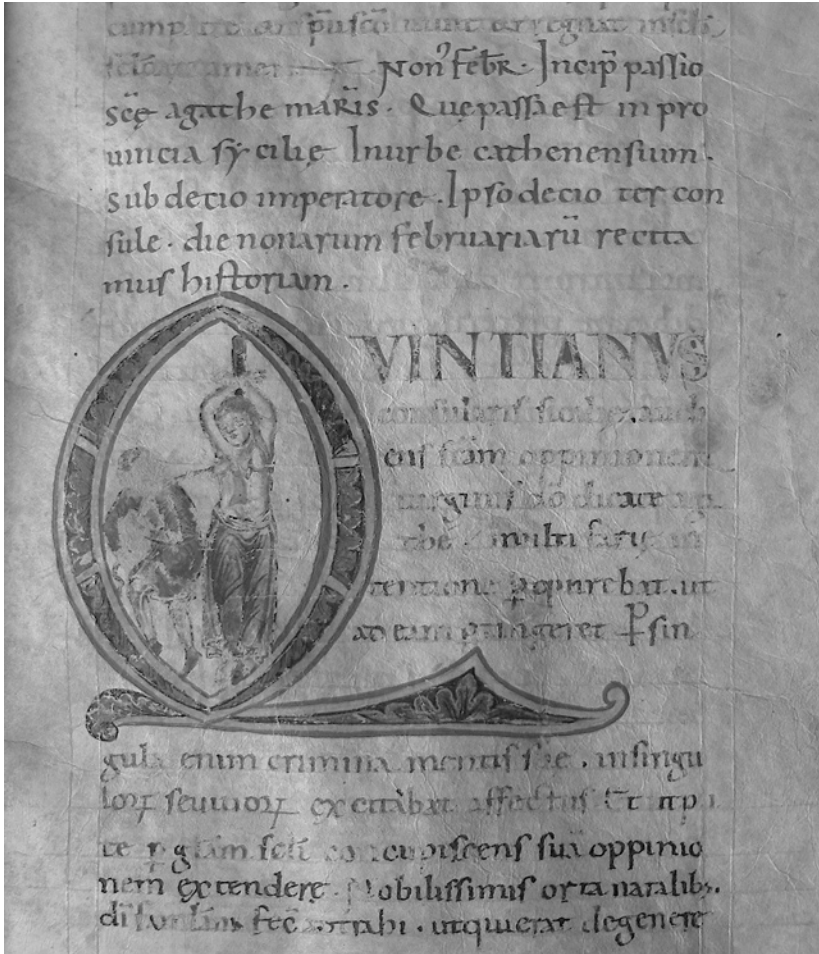 Non᷒ febr̄. Incip̄ passio
scę̄ agathe mar̄is. Quę passa est in pro
uincia sycilię In urbe cathenensium.
sub decio imperatore. Ipso decio ter con
sule. die nonarum februariarū recita
mus historiam.
QVINTIANVS
consularis
ens scām oppinionem
uirginis dō dicatę
multi
tentione ꝑquirebat. ut
ad eam ꝑtingeret P̄ sin
gula enim crimina mentis suę. in singu
loꝝ seuitioꝝ excitabat affectus Et
te ꝓ glām sc̄li concupiscens suā oppinio
nem extendere. Nobilissimis orta natalibꝫ.
fec̄ attrahi. ut qui erat degenere